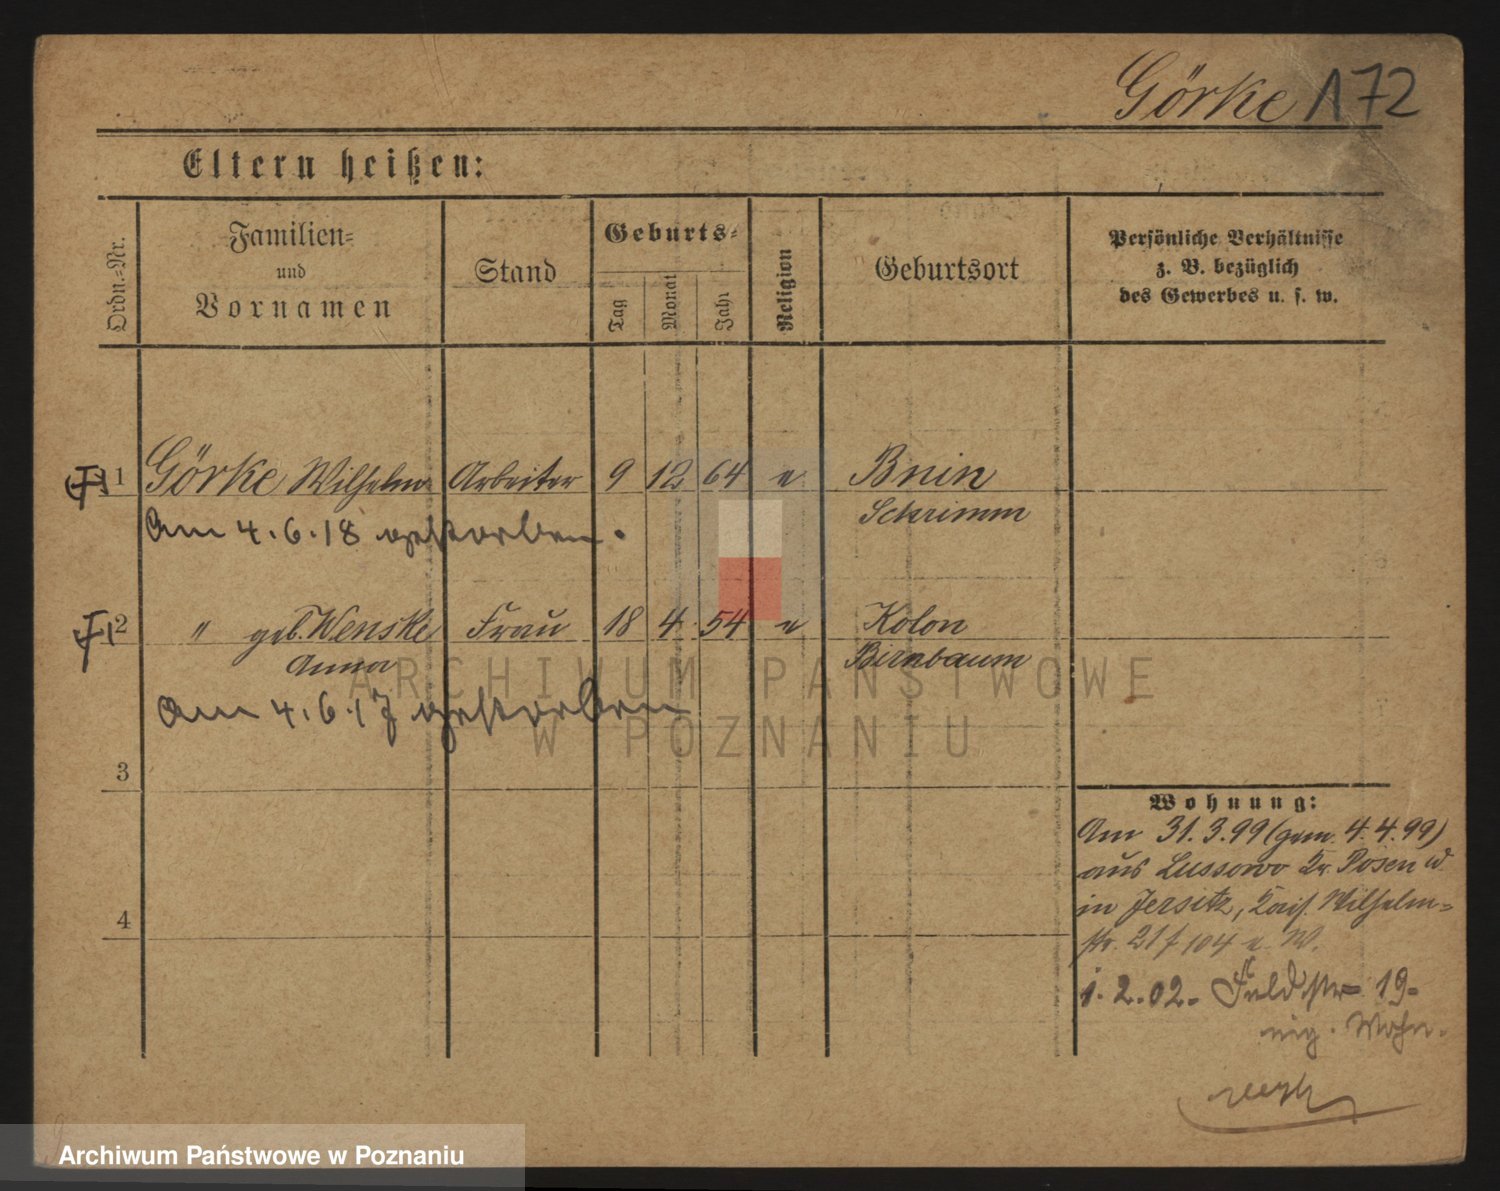 Görke 172
Eltern heißen:
Ordn.=Nr.
Familien=
und
Vornamen
Stand
Geburts=
Tag
Monat
Jahr
Religion
Geburtsort
Persönliche Verhältnisse
z. B. bezüglich
des Gewerbes u. s. w.
1 Görke Wilhelm Arbeiter 9 12 64 e Bnin
Schrimm
Am 4.6.18 gestorben.
2 " geb. Wenske Frau 18 4 54 e Kolon
Anna Birnbaum
Am 4.6.17 gestorben
3
4
Wohnung:
Am 31.3.99 (gem. 4.4.99)
aus Lussowo Kr. Posen W.
in Jersitz, Kais. Wilhelm=
str. 21 104 e. W.
1.2.02. Feldstr 19.
eig. Wohn.
ARCHIWUM PAŃSTWOWE
W POZNANIU
Archiwum Państwowe w Poznaniu